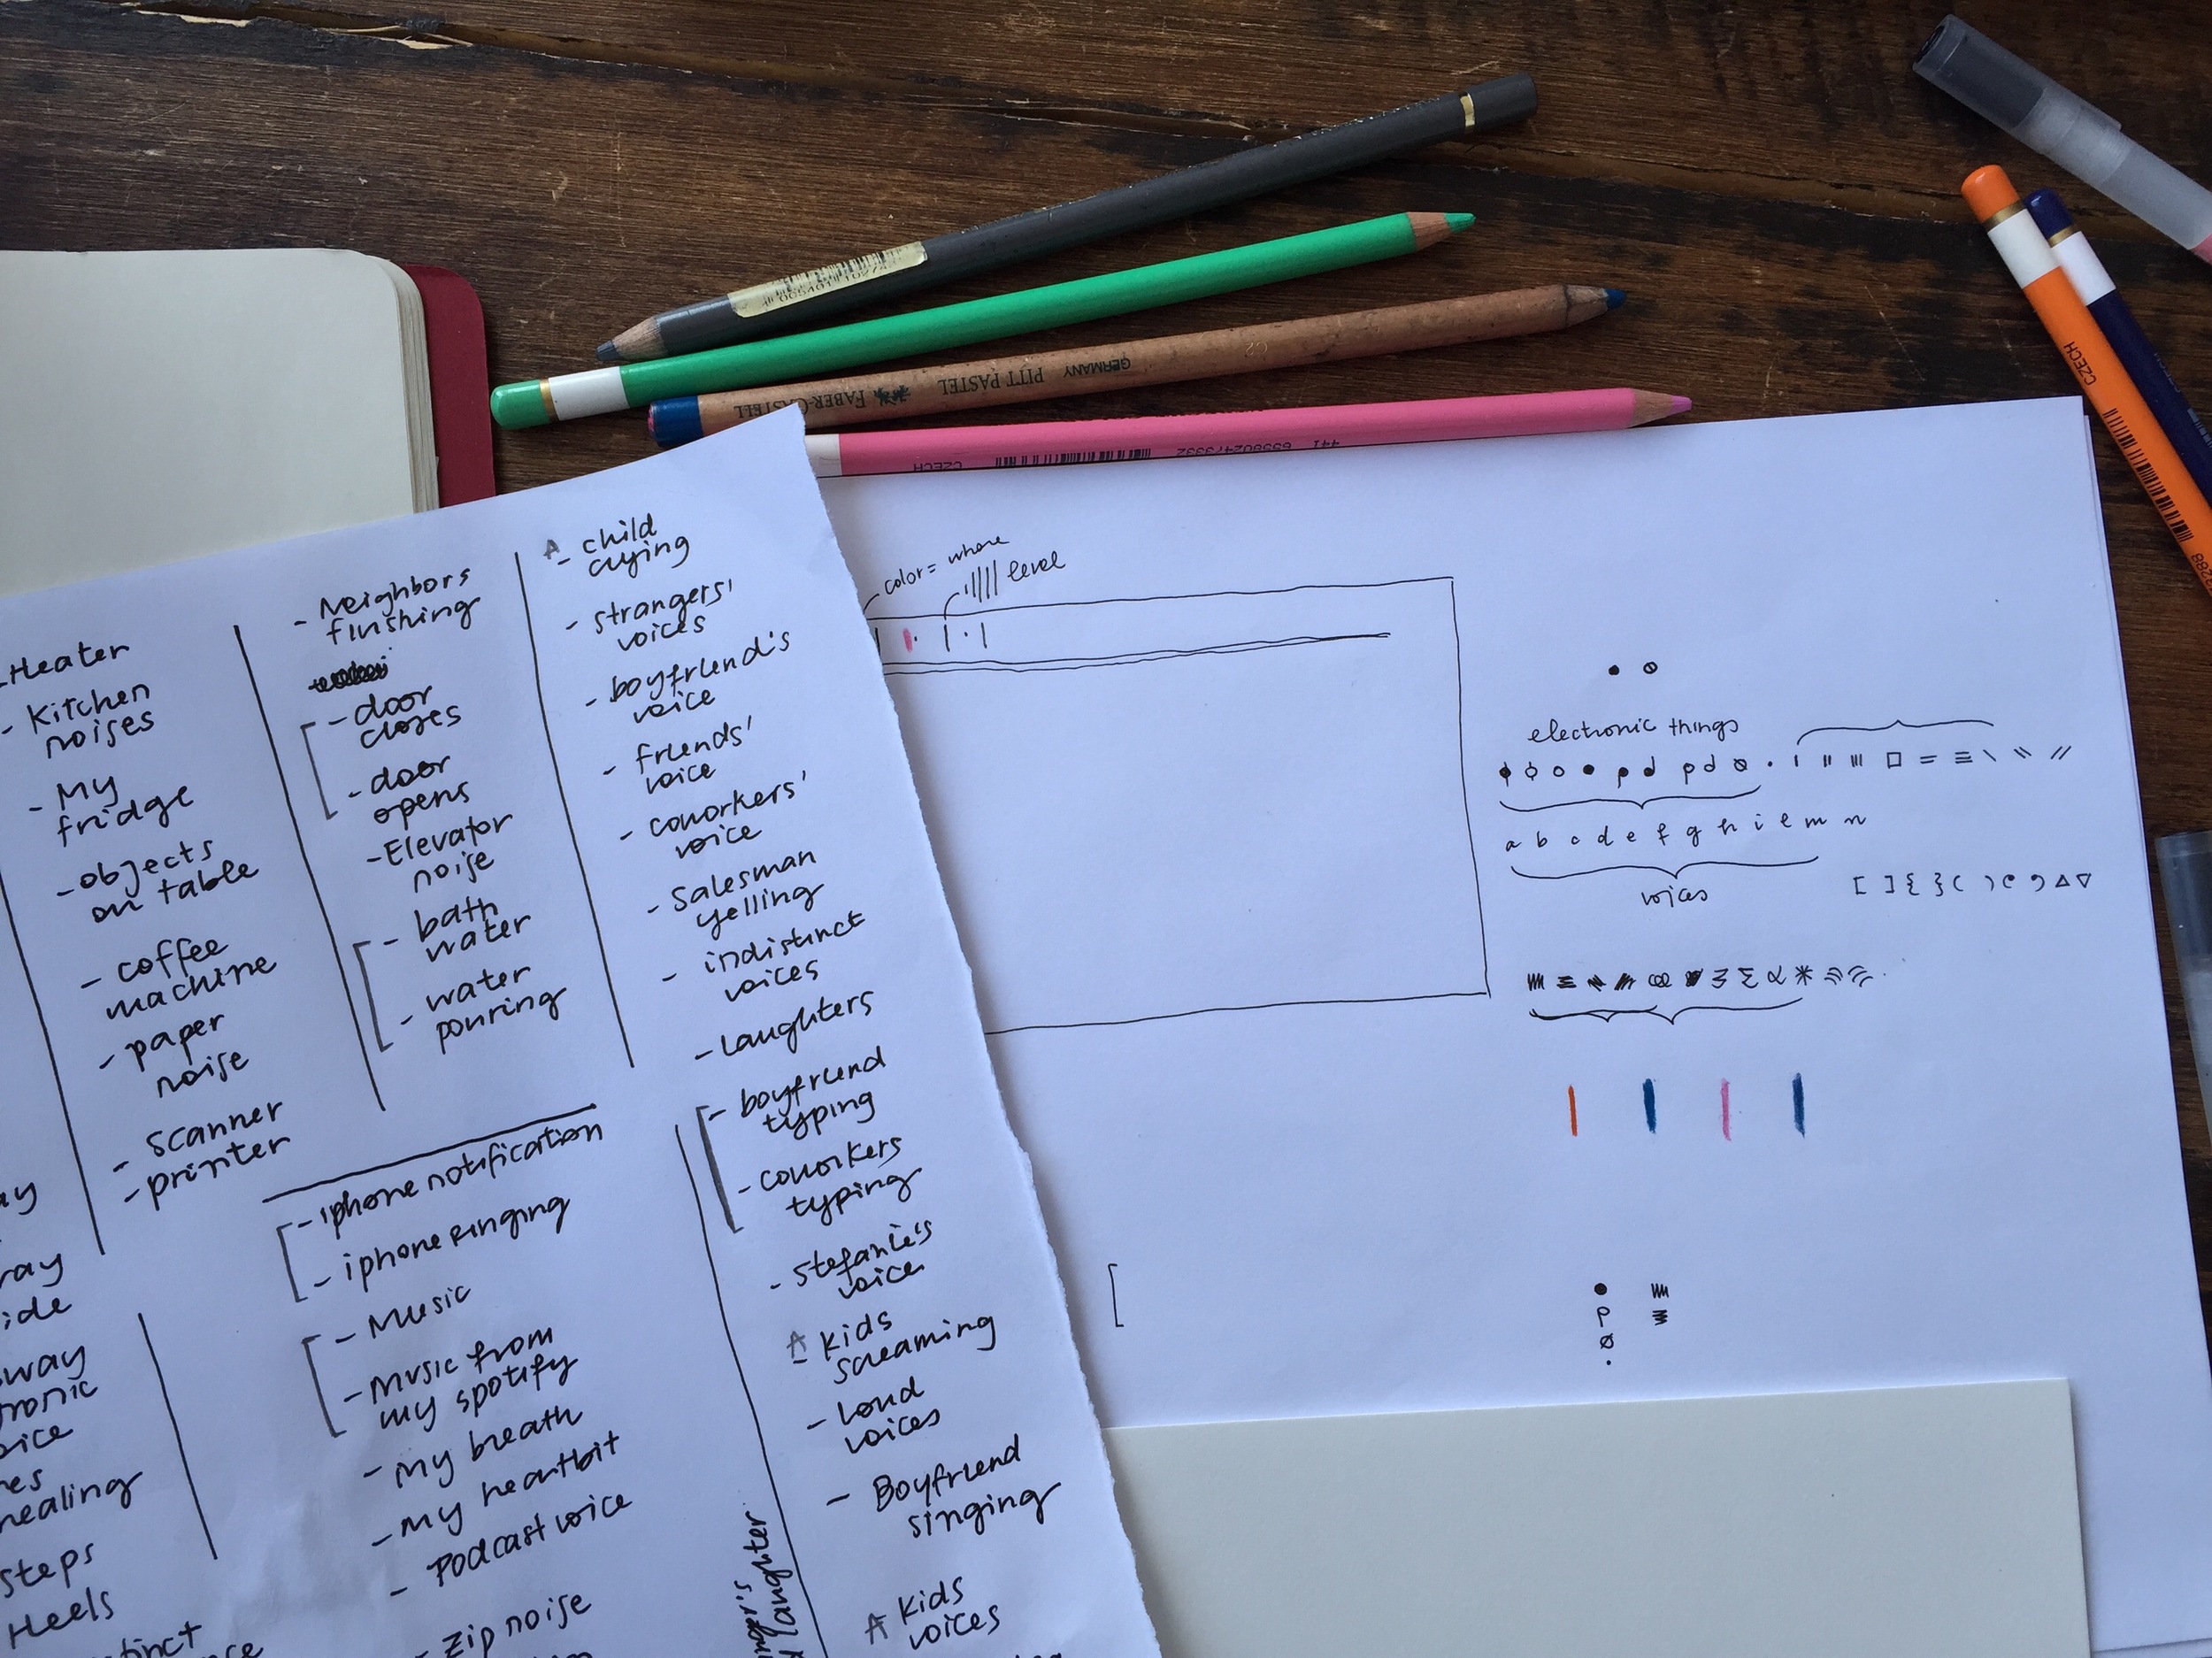 FABER-CASTELL PITT PASTEL GERMANY
CZECH
CZECH
- Heater
- Kitchen
noises
- My
fridge
- objects
on table
- coffee
machine
- paper
noise
- scanner
- printer
steps
Heels
- Neighbors
flushing
- door
closes
- door
opens
- Elevator
noise
- bath
water
- water
pouring
- iphone notification
- iphone ringing
- Music
- Music from
my spotify
- my breath
- my heartbit
- Podcast voice
- zip noise
A - child
crying
- strangers'
voices
- boyfriend's
voice
- friends'
voice
- coworkers'
voice
- salesman
yelling
- indistinct
voices
- laughters
- boyfriend
typing
- coworkers
typing
- stefanie's
voice
A - kids
screaming
- Loud
voices
- Boyfriend
singing
A kids
voices
color = where
level
electronic things
a b c d e f g h i l m n
voices